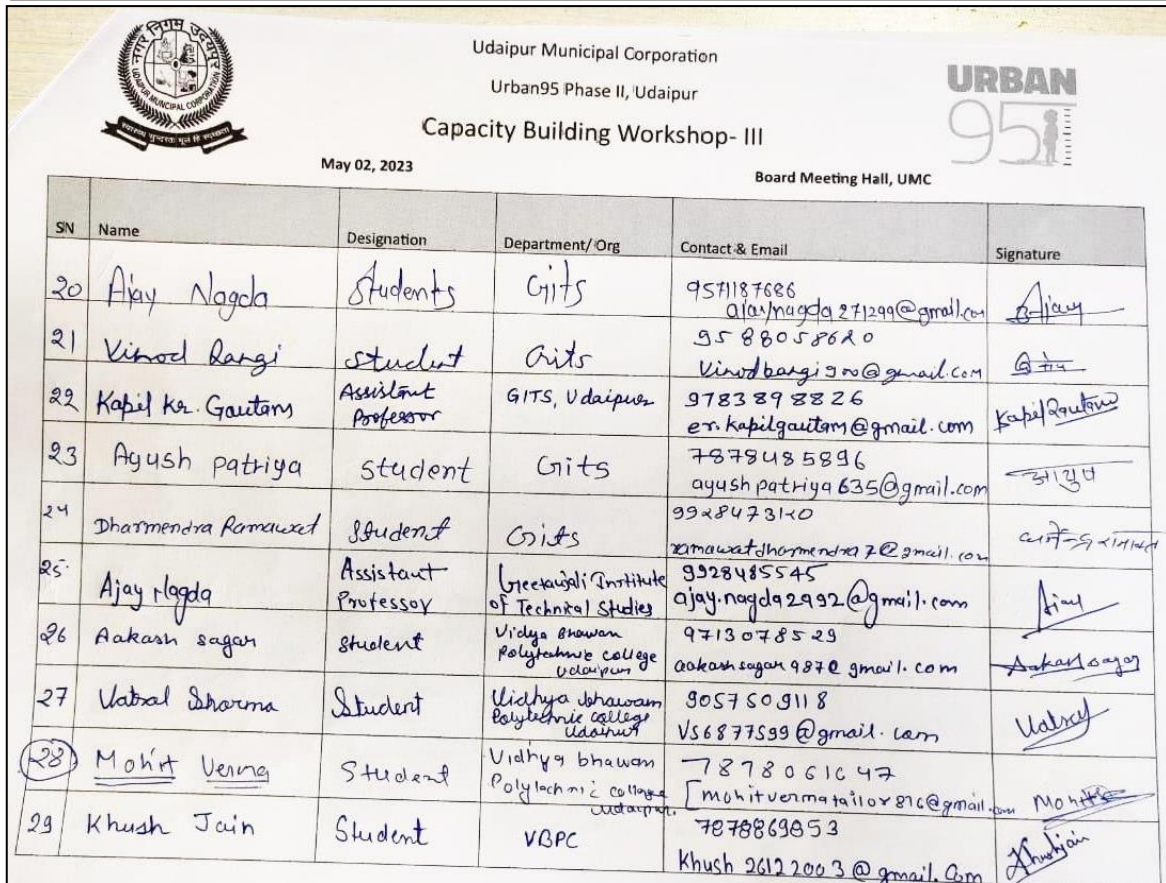 नगर निगम उदयपुर
UDAIPUR MUNICIPAL CORPORATION
Udaipur Municipal Corporation
Urban95 Phase II, Udaipur
Capacity Building Workshop- III
URBAN
95
May 02, 2023
Board Meeting Hall, UMC
SN Name Designation Department/ Org Contact & Email Signature
20 Ajay Nagda Students Gits 9571187686 Ajay
ajaynagda271299@gmail.com
21 Vinod Bangi student Gits 9588058620
Vinodbangi900@gmail.com
22 Kapil Kr. Gautam Assistant Professor GITS, Udaipur 9783898826 Kapil Gautam
er.kapilgautam@gmail.com
23 Ayush patriya student Gits 7878485896 आयुष
ayushpatriya635@gmail.com
24 Dharmendra Ramawat Student Gits 9928473120
ramawatdharmendra7@gmail.com
25 Ajay Nagda Assistant Professor Geetanjali Institute of Technical Studies 9928485545 Ajay
ajay.nagda2992@gmail.com
26 Aakash sagar student Vidya Bhawan Polytechnic college Udaipur 9713078529 Aakash sagar
aakashsagar987@gmail.com
27 Vatsal Sharma Student Vidhya bhawam Polytechnic college Udaipur 9057509118 Vatsal
VS6877599@gmail.com
28 Mohit Verma Student Vidhya bhawan Polytechnic collage Udaipur. 7878061647 Mohit
mohitvermatailor816@gmail.com
29 Khush Jain Student VBPC 7878869853 Khushjain
Khush26122003@gmail.com